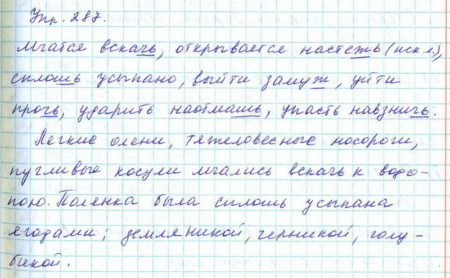 Упр. 287.
Мчатся вскачь, открывается настежь (искл.),
сплошь усыпано, выйти замуж, уйти
прочь, ударить наотмашь, упасть навзничь.
Легкие олени, тяжеловесные носороги,
пугливые косули мчались вскачь к водо-
пою. Полянка была сплошь усыпана
ягодами: земляникой, черникой, голу-
бикой.